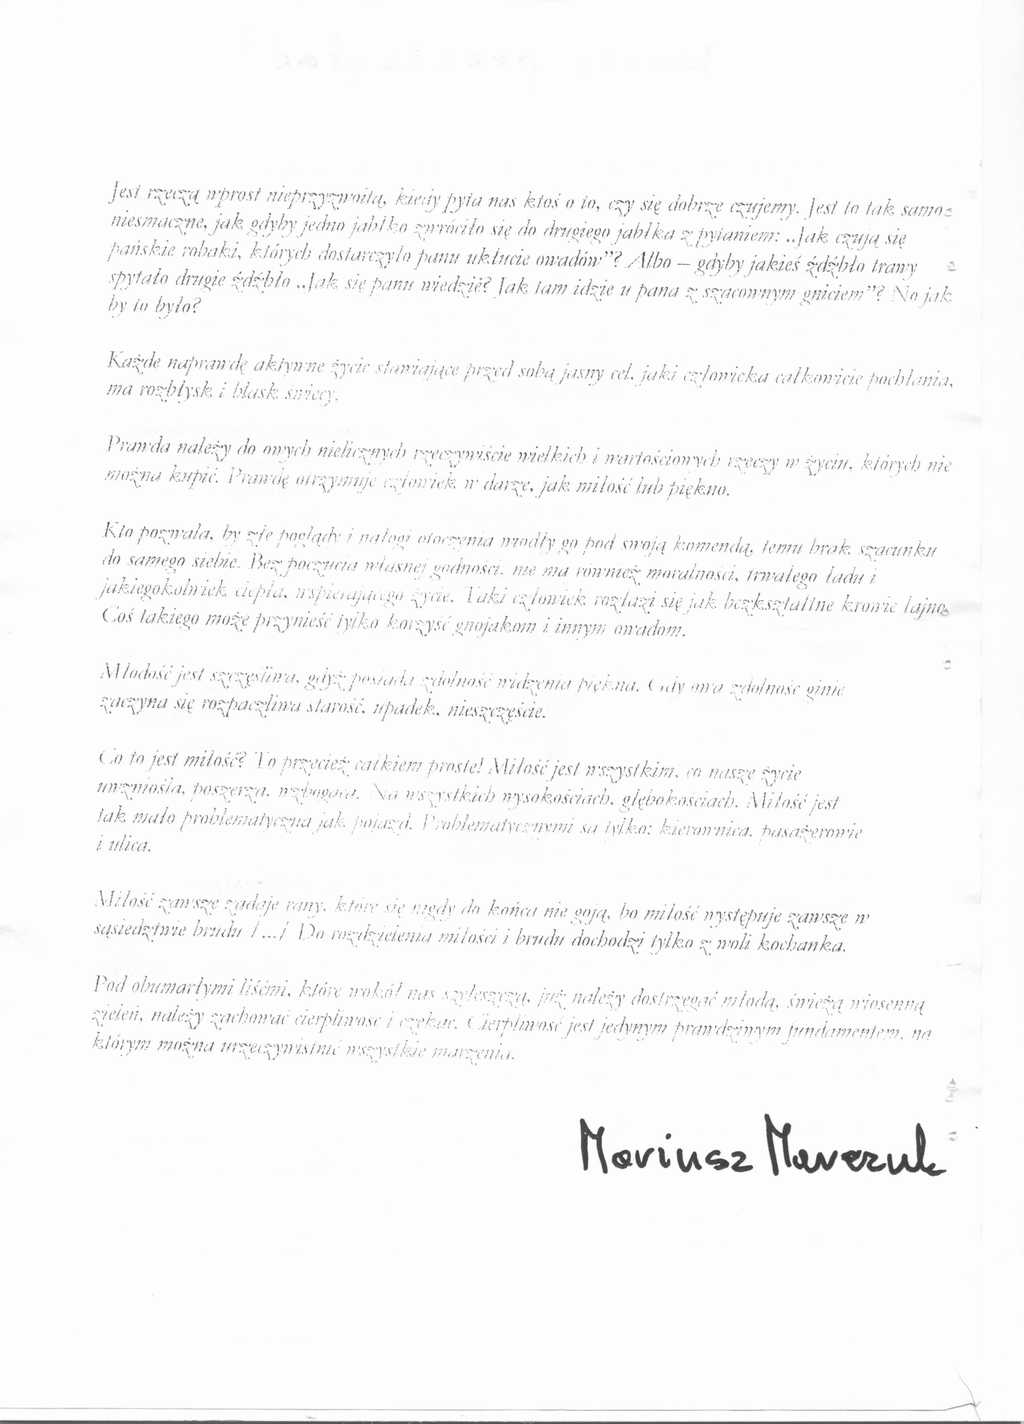 Jest rzeczą wprost nieprzyzwoitą, kiedy pyta nas ktoś o to, czy się dobrze czujemy. Jest to tak samo
niesmaczne, jak gdyby jedno jabłko zwróciło się do drugiego jabłka z pytaniem: „Jak czują się
pańskie robaki, których dostarczyło panu ukłucie owadów”? Albo – gdyby jakieś źdźbło trawy
spytało drugie źdźbło „Jak się panu więdzie? Jak tam idzie u pana z szacownym gniciem”? No jak
by to było?
Każde naprawdę aktywne życie stawiające przed sobą jasny cel, jaki człowieka całkowicie pochłania,
ma rozbłysk i blask świecy.
Prawda należy do owych nielicznych rzeczywiście wielkich i wartościowych rzeczy w życiu, których nie
można kupić. Prawdę otrzymuje człowiek w darze, jak miłość lub piękno.
Kto pozwala, by złe poglądy i nałogi otoczenia wiodły go pod swoją komendą, temu brak szacunku
do samego siebie. Bez poczucia własnej godności, nie ma również moralności, trwałego ładu i
jakiegokolwiek ciepła, wspierającego życie. Taki człowiek rozłazi się jak bezkształtne krowie łajno.
Coś takiego może przynieść tylko korzyść gnojakom i innym owadom.
Młodość jest szczęśliwa, gdyż posiada zdolność widzenia piękna. Gdy owa zdolność ginie
zaczyna się rozpaczliwa starość, upadek, nieszczęście.
Co to jest miłość? To przecież całkiem proste! Miłość jest wszystkim, co nasze życie
uwzniośla, poszerza, wzbogaca. Na wszystkich wysokościach, głębokościach. Miłość jest
tak mało problematyczna jak pojazd. Problematycznymi są tylko: kierownica, pasażerowie
i ulica.
Miłość zawsze zadaje rany, które się nigdy do końca nie goją, bo miłość występuje zawsze w
sąsiedztwie brudu [...] Do rozdzielenia miłości i brudu dochodzi tylko z woli kochanka.
Pod obumarłymi liśćmi, które wokół nas szeleszczą, już należy dostrzegać młodą, świeżą wiosenną
zieleń, należy zachować cierpliwość i czekać. Cierpliwość jest jedynym prawdziwym fundamentem, na
którym można urzeczywistnić wszystkie marzenia.
Mariusz